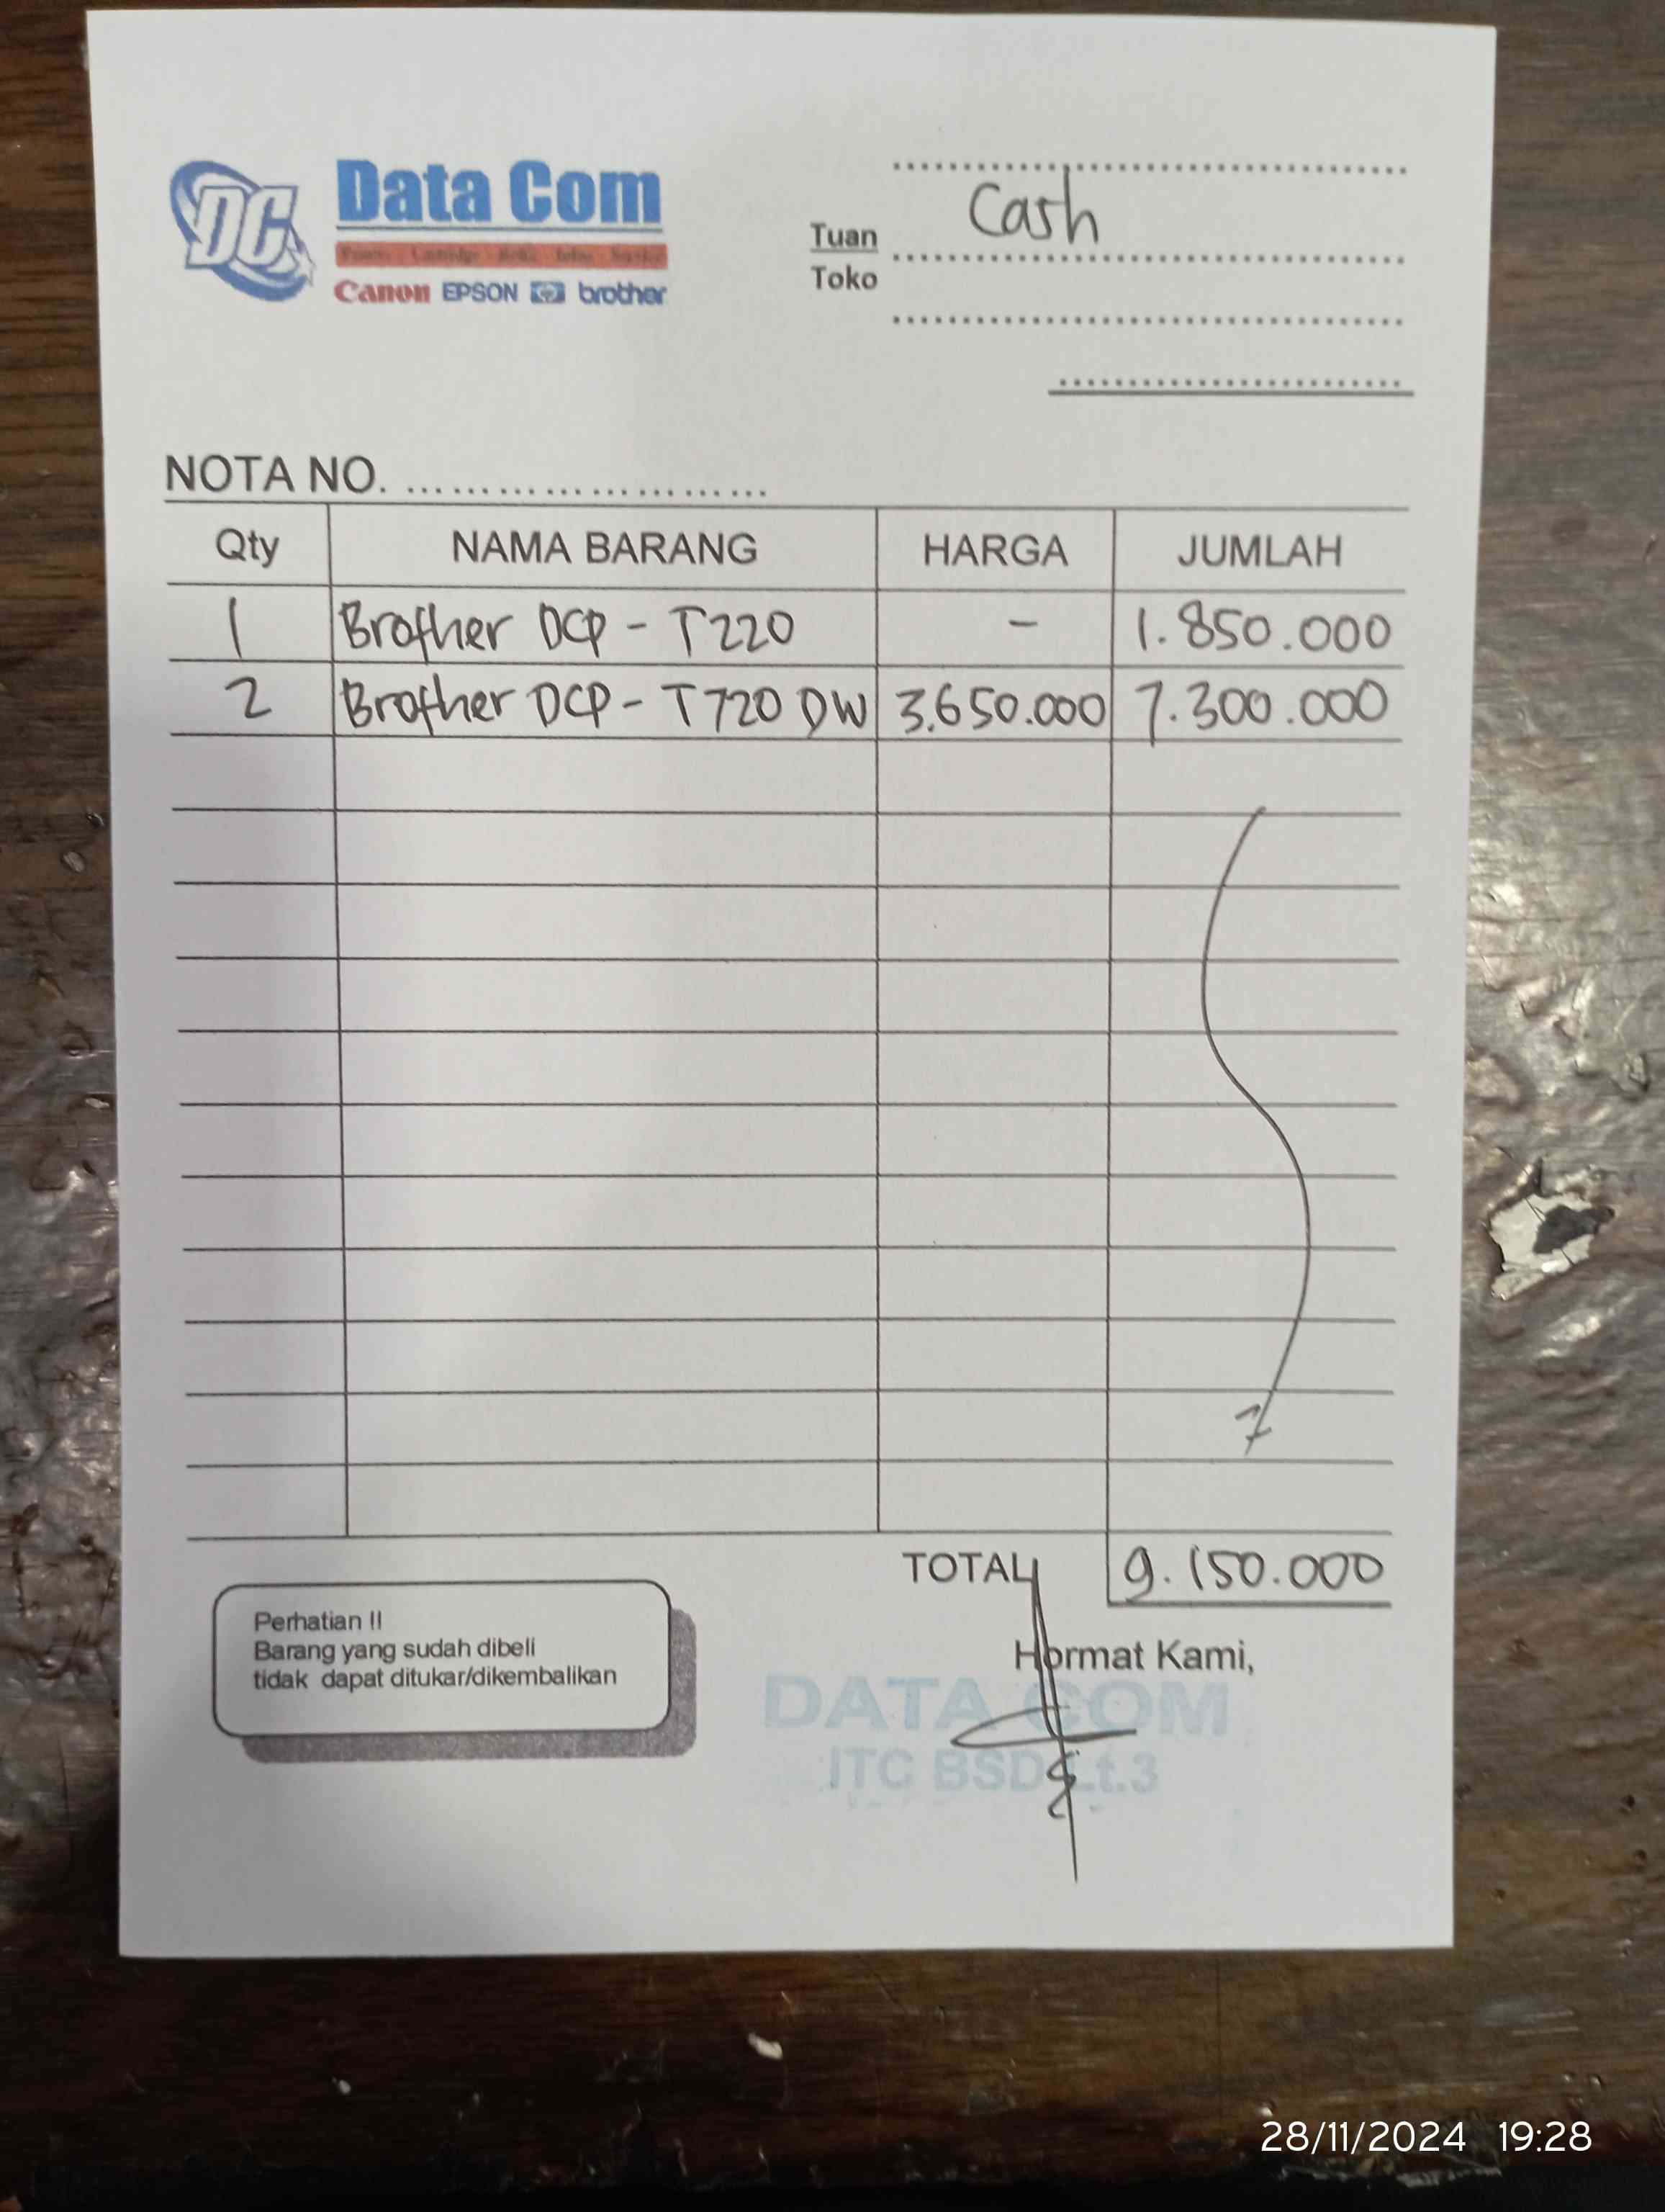 DC
Data Com
Canon EPSON hp brother
Cash
Tuan
Toko
NOTA NO. ........................
Qty NAMA BARANG HARGA JUMLAH
1 Brother DCP - T220 - 1.850.000
2 Brother DCP - T720 DW 3.650.000 7.300.000
TOTAL 9.150.000
Perhatian !!
Barang yang sudah dibeli
tidak dapat ditukar/dikembalikan
Hormat Kami,
DATA COM
ITC BSD Lt.3
28/11/2024 19:28